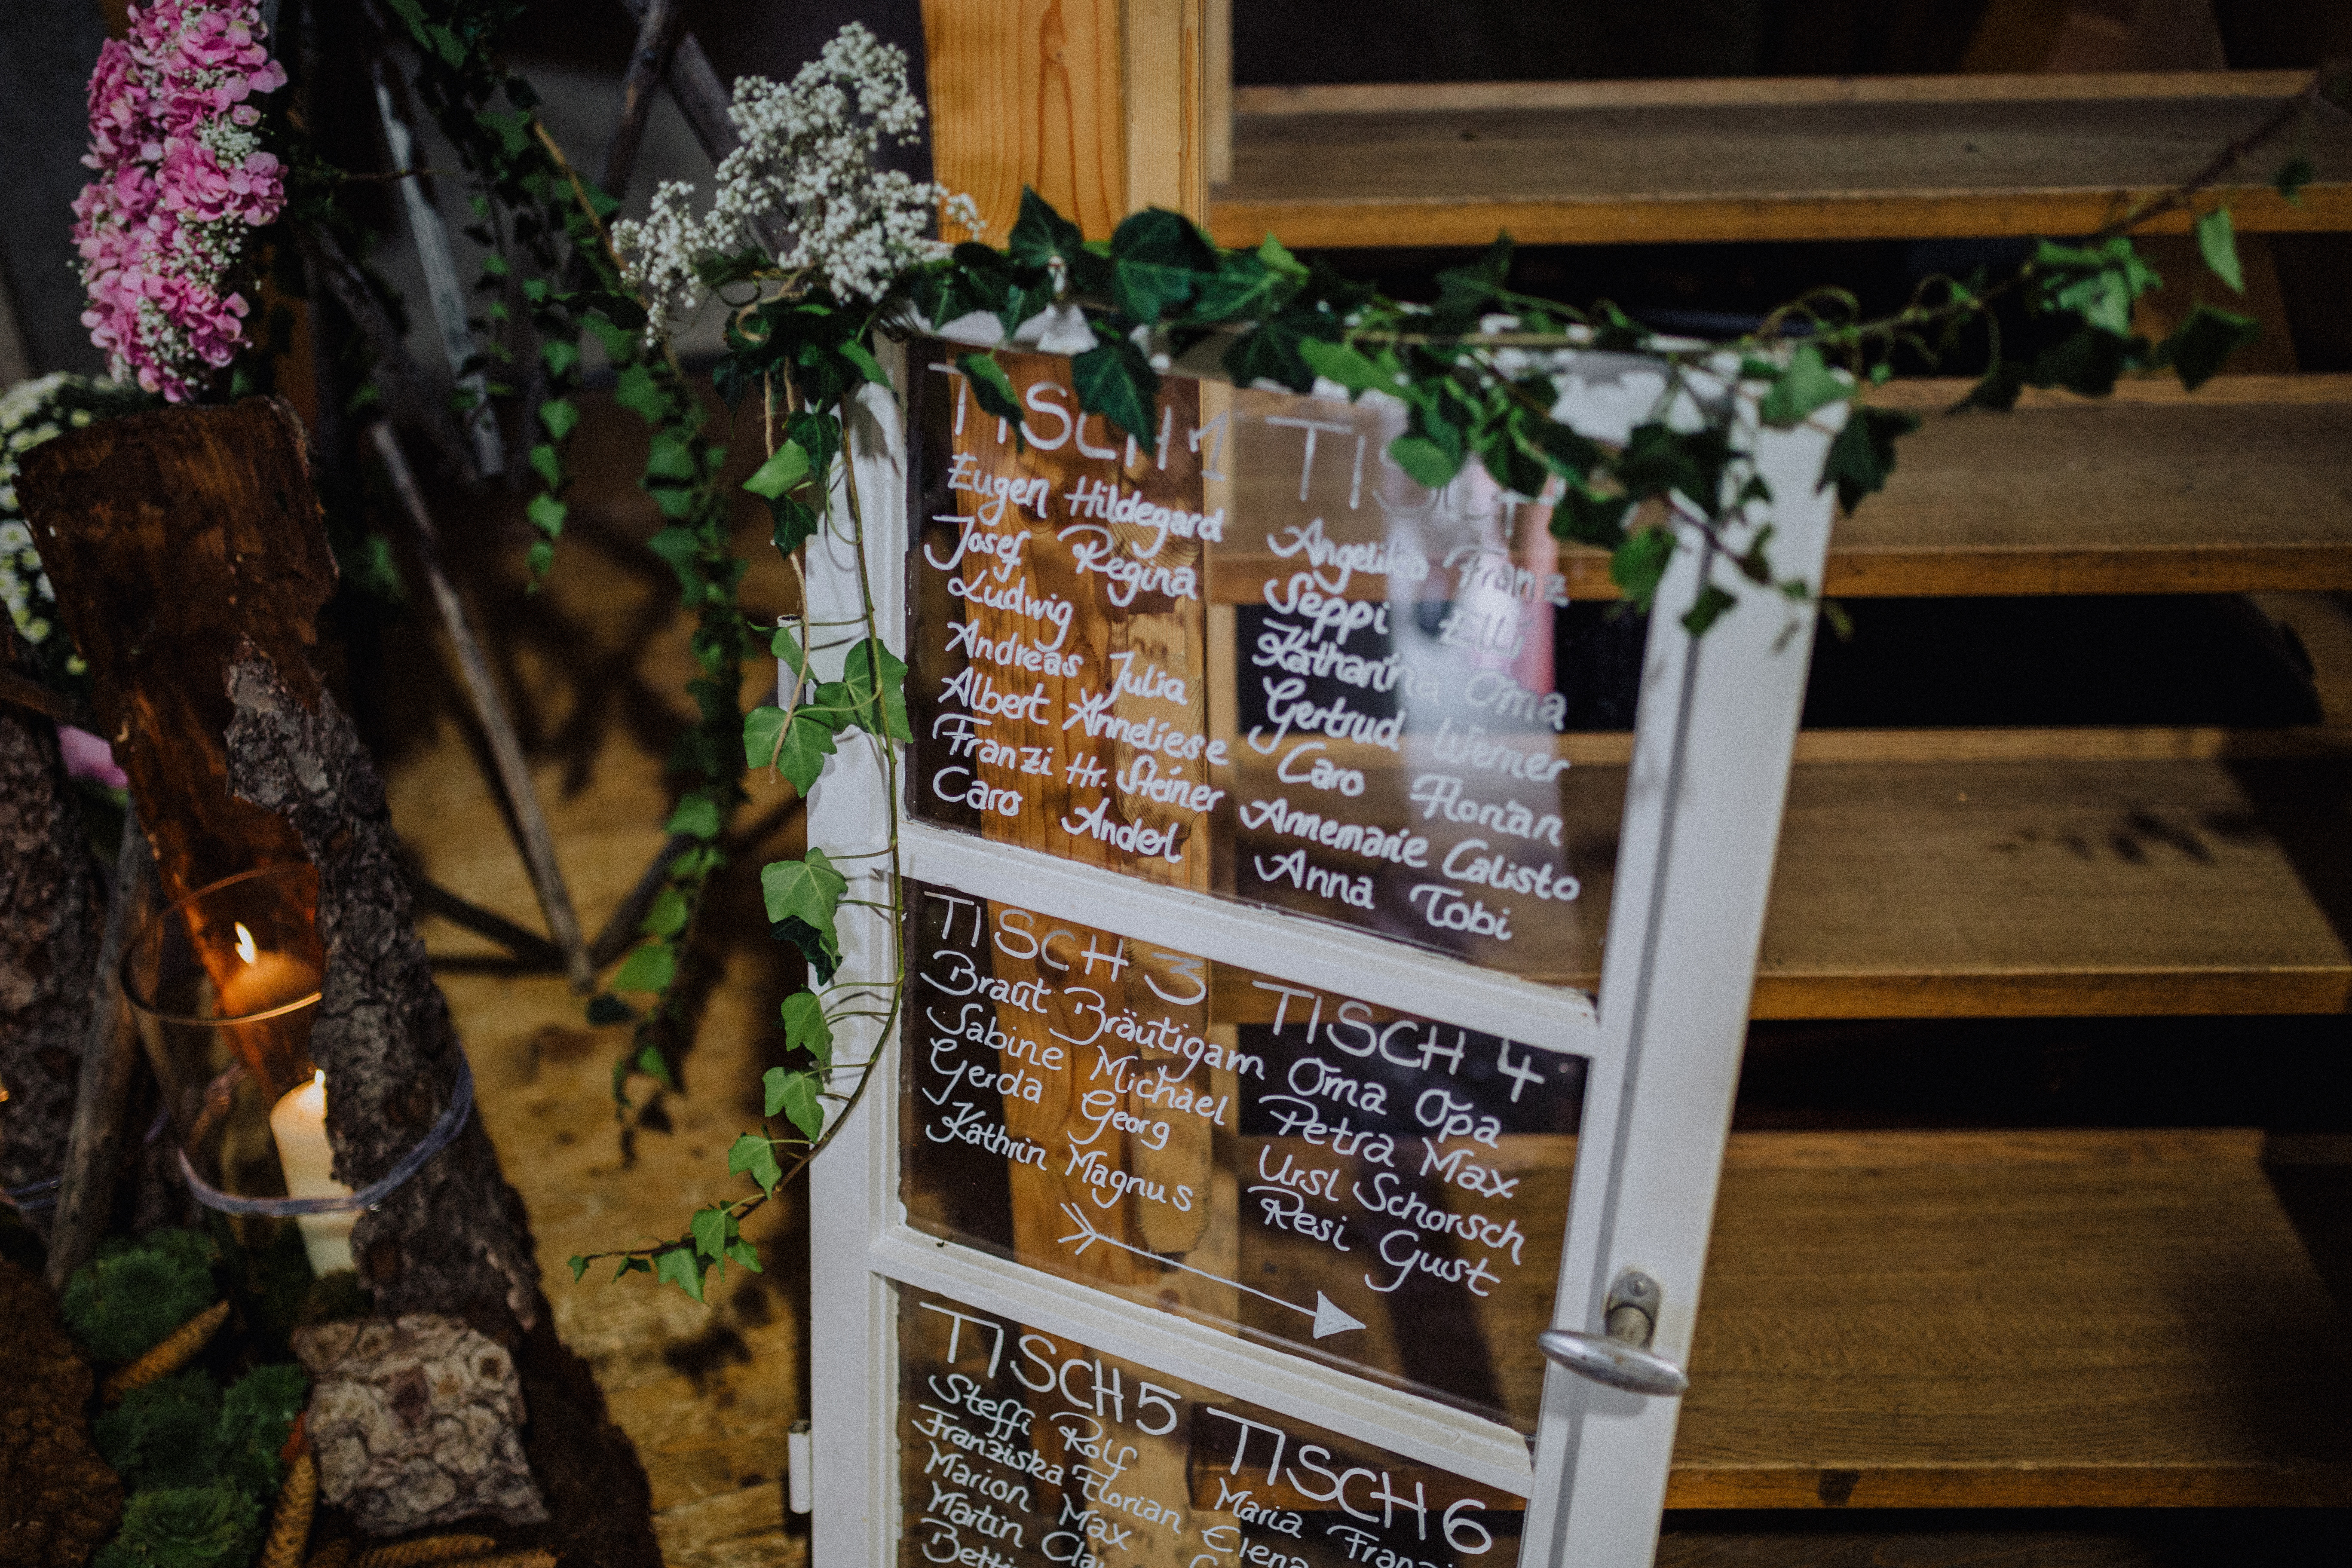 TISCH 1
Eugen Hildegard
Josef Regina
Ludwig
Andreas Julia
Albert Anneliese
Franzi Hr. Steiner
Caro Anderl
Angelika Franz
Seppi Elli
Katharina Oma
Gertrud Werner
Caro Florian
Annemarie Calisto
Anna Tobi
TISCH 3
Braut Bräutigam
Sabine Michael
Gerda Georg
Kathrin Magnus
TISCH 4
Oma Opa
Petra Max
Ursl Schorsch
Resi Gust
TISCH 5
Steffi Rolf
Franziska Florian
Marion Max
Martin
TISCH 6
Maria
Elena